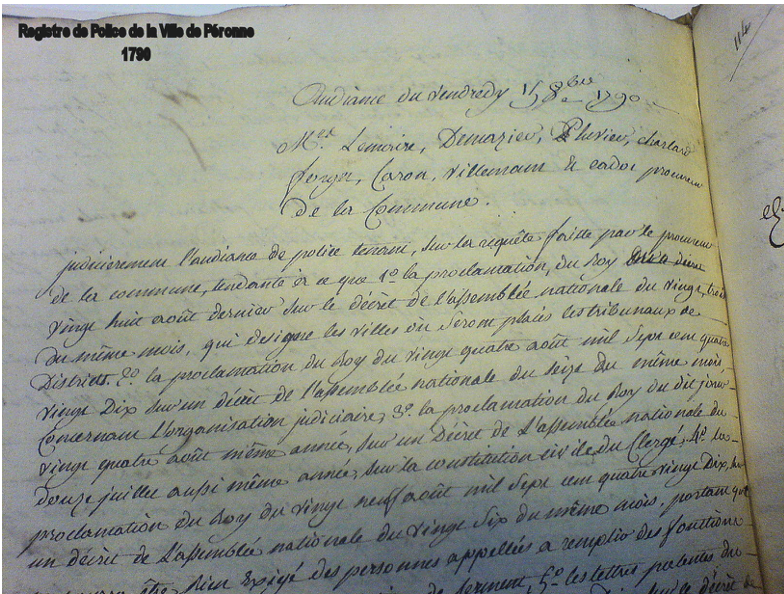 Registre de Police de la Ville de Péronne
1790
114
Audiance du Vendredy 15 8bre 1790
Mrs. Lemoire, Demazier, Pluvier, charlard
forger, Caron, Villemain & cadot procureur
de la Commune.
judicierement l'audiance de police tenant, sur la requête faitte par le procureur
de la commune, tendante à ce que 1o. la proclamation, du Roy
vingt huit août dernier sur le décrèt de l'assemblée nationale du vingt trois
du même mois, qui designe les villes où seront placés les tribunaux de
Districts. 2o. la proclamation du Roy du vingt quatre août mil sept cem quatre
vingt Dix sur un décrèt de l'assemblée nationale du seize du même mois,
Concernant l'organisation judiciaire, 3o. la proclamation du Roy du dit jour
vingt quatre août même année, sur un Décrèt de L'assemblée nationale du
douze juillet aussi même année, sur la constitution civile du Clergé, 4o. la
proclamation du Roy du vingt neuf août mil sept cem quatre vingt Dix, sur
un décrèt de L'assemblée nationale du vingt Six du même mois, portant que
être Rien Exigé des personnes appellées a remplir des fonctions
de serment, 5o. les lettres patentes du
sur le décrèt de